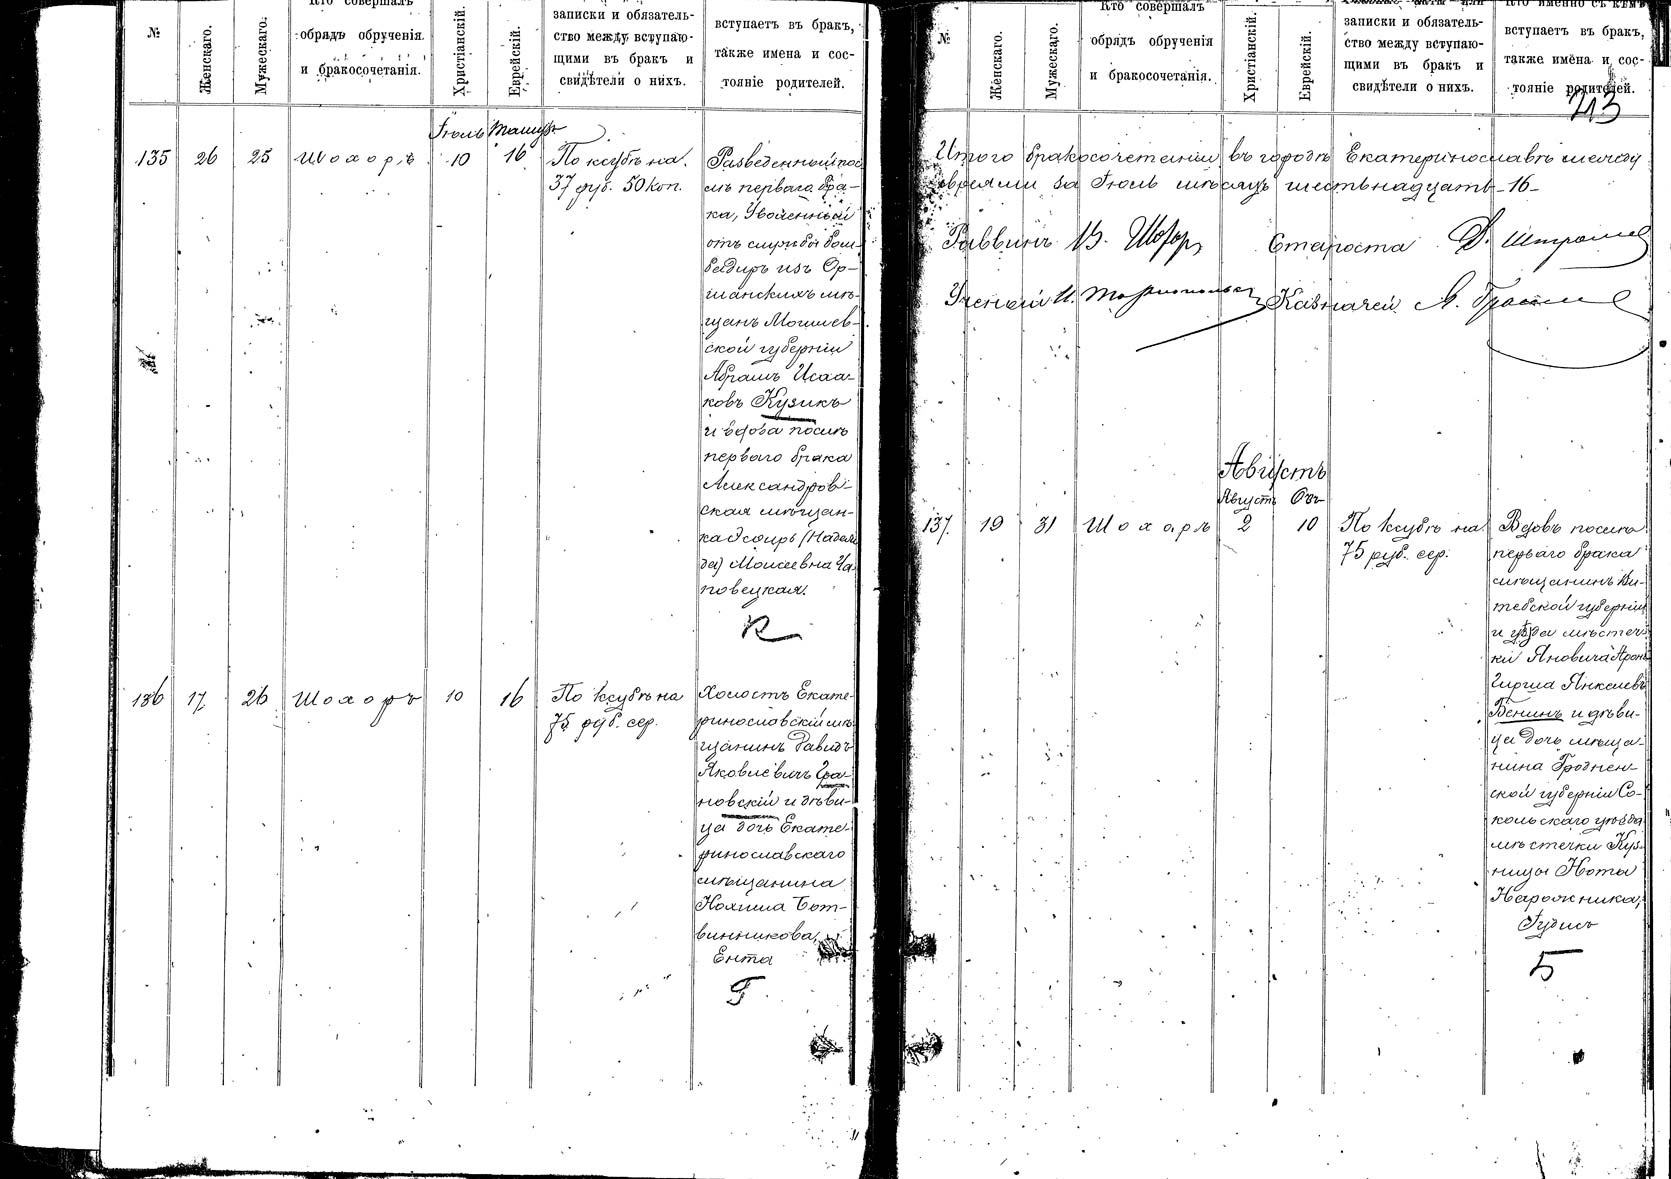 №
Женскаго.
Мужескаго.
Кто совершалъ
обрядъ обрученія
и бракосочетанія.
Христіанскій.
Еврейскій.
записки и обязатель-
ство между вступаю-
щими въ бракъ и
свидѣтели о нихъ.
вступаетъ въ бракъ,
также имена и сос-
тояніе родителей.
Іюль
135 26 25 Шохоръ 10 16
По ксубѣ на
37 руб. 50 коп.
Разведенный пос-
лѣ перваго бра-
ка, Уволенный
отъ службы бом-
бадиръ изъ Ор-
шанскихъ мѣ-
щанъ Могилев-
ской губерніи
Абрамъ Исаа-
ковъ Кузикъ
и вдова послѣ
перваго брака
Александров-
ская мѣщан-
ка Эсѳирь (Надеж
да) Моисеевна Ча
повецкая.
К
136 17 26 Шохоръ 10 16
По ксубѣ на
75 руб. сер.
Холостъ Екате-
ринославскій мѣ-
щанинъ Давидъ
Яковлевичъ Гра-
новскій и дѣви-
ца дочь Екате-
ринославскаго
мѣщанина
Нохима Бот-
винникова,
Ента
Г
№
Женскаго.
Мужескаго.
Кто совершалъ
обрядъ обрученія
и бракосочетанія.
Христіанскій.
Еврейскій.
записки и обязатель-
ство между вступаю-
щими въ бракъ и
свидѣтели о нихъ.
Кто именно съ кѣмъ
вступаетъ въ бракъ,
также имена и сос-
тояніе родителей.
213
Итого бракосочетаній въ городѣ Екатеринославѣ между
евреями за Іюль мѣсяцъ шестьнадцать -16-
Раввинъ В. Шохоръ Староста
Ученый И. Казначей
Августъ
Августъ Овъ
137. 19 31 Шохоръ 2 10
По ксубѣ на
75 руб. сер.
Вдовъ послѣ
перваго брака
мѣщанинъ Ви-
тебской губерніи
и уѣзда мѣстеч-
ки Яновича Аронъ
Гирша Янкелевъ
Бенинъ и дѣви-
ца дочь мѣща-
нина Гроднен-
ской губерніи Со-
кольскаго уѣзда
мѣстечки Куз-
ницы Нота
Нарожника,
Іудись
Б